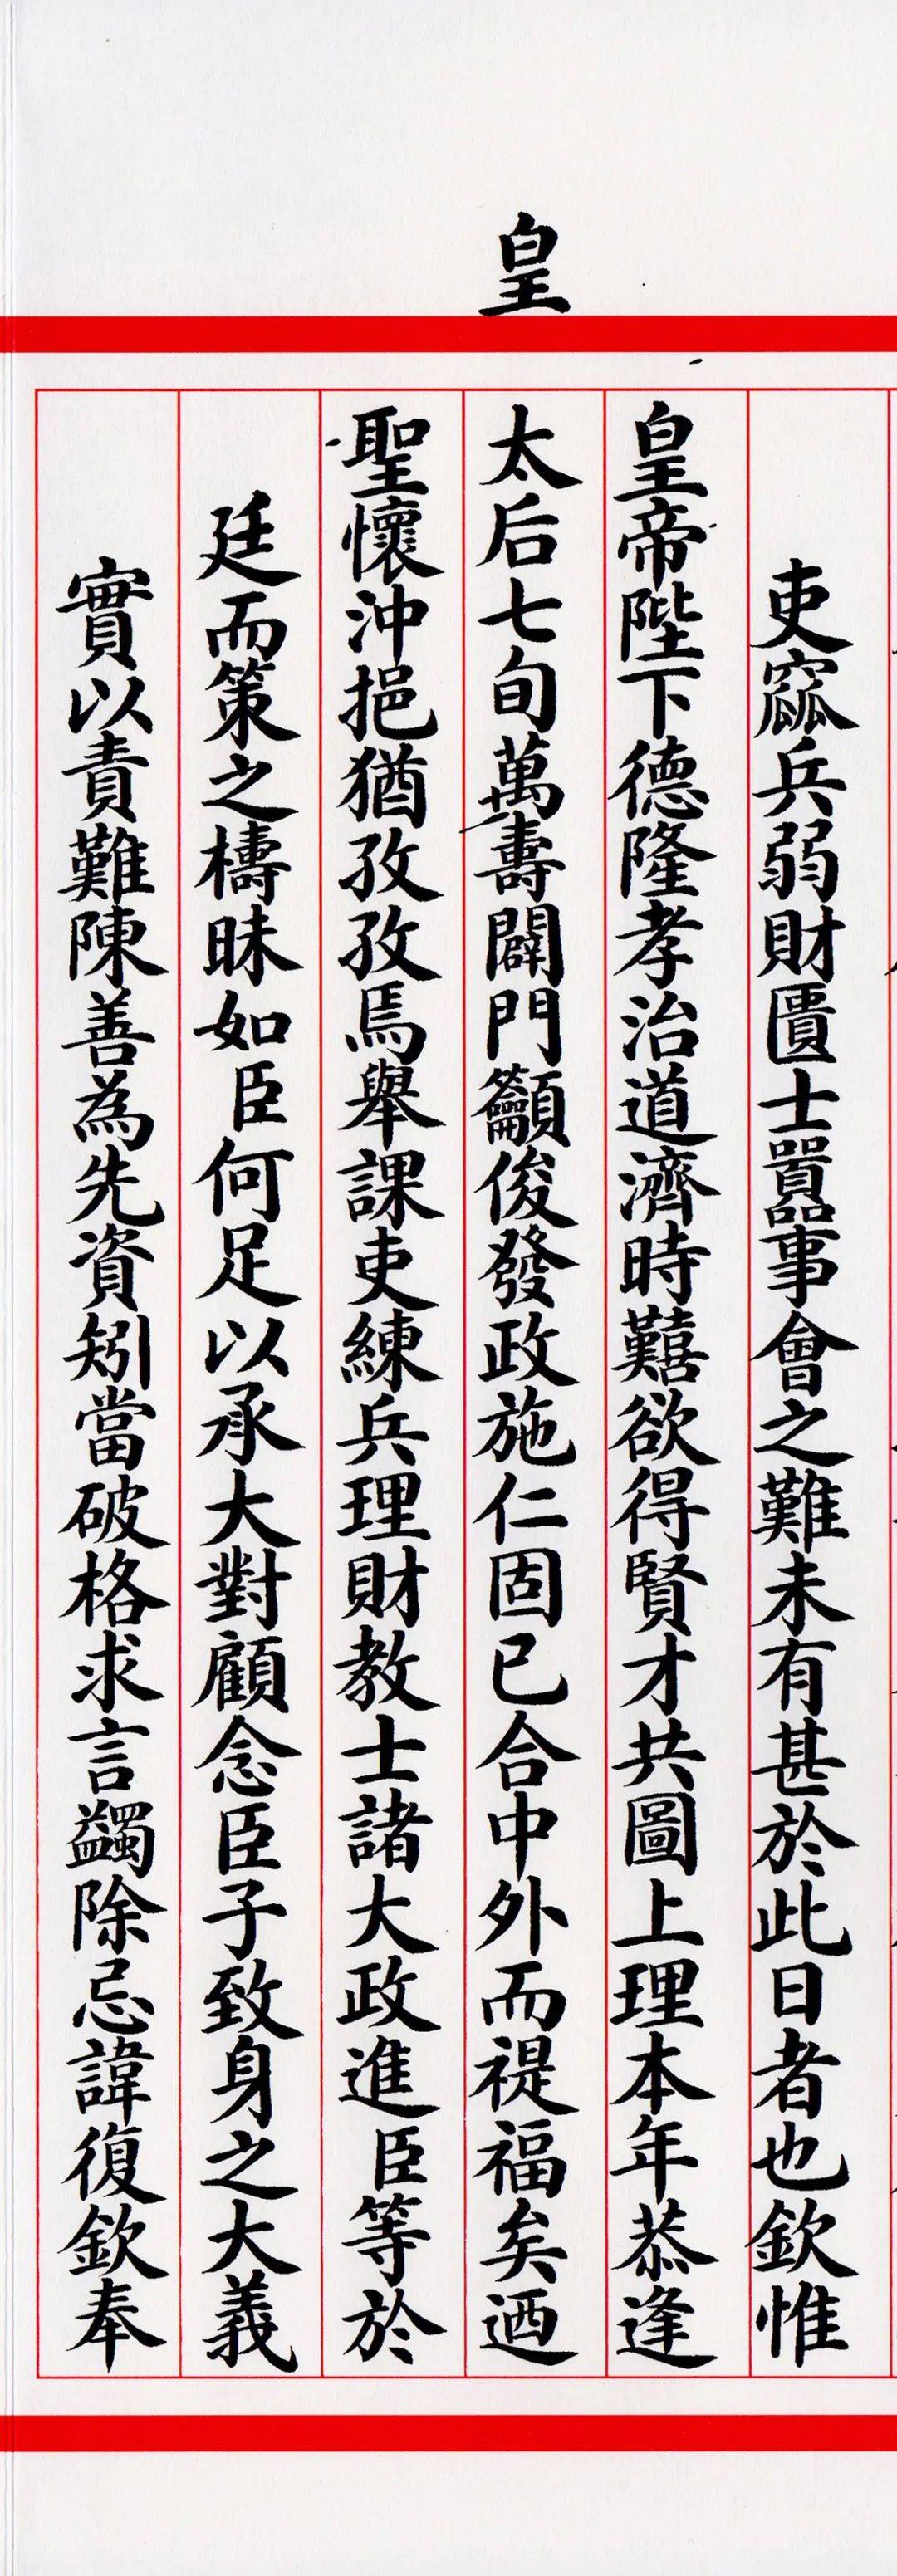 吏窳兵弱財匱士嚚事會之難未有甚於此日者也欽惟
皇帝陛下德隆孝治道濟時囏欲得賢才共圖上理本年恭逢
皇太后七旬萬壽闢門籲俊發政施仁固已合中外而禔福矣迺
聖懷沖挹猶孜孜焉舉課吏練兵理財教士諸大政進臣等於
廷而策之檮昧如臣何足以承大對顧念臣子致身之大義
實以責難陳善為先資矧當破格求言蠲除忌諱復欽奉